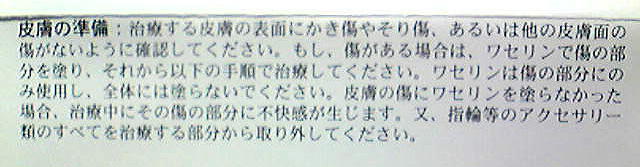 皮膚の準備：治療する皮膚の表面にかき傷やそり傷、あるいは他の皮膚面の
傷がないように確認してください。もし、傷がある場合は、ワセリンで傷の部
分を塗り、それから以下の手順で治療してください。ワセリンは傷の部分にの
み使用し、全体には塗らないでください。皮膚の傷にワセリンを塗らなかった
場合、治療中にその傷の部分に不快感が生じます。又、指輪等のアクセサリー
類のすべてを治療する部分から取り外してください。